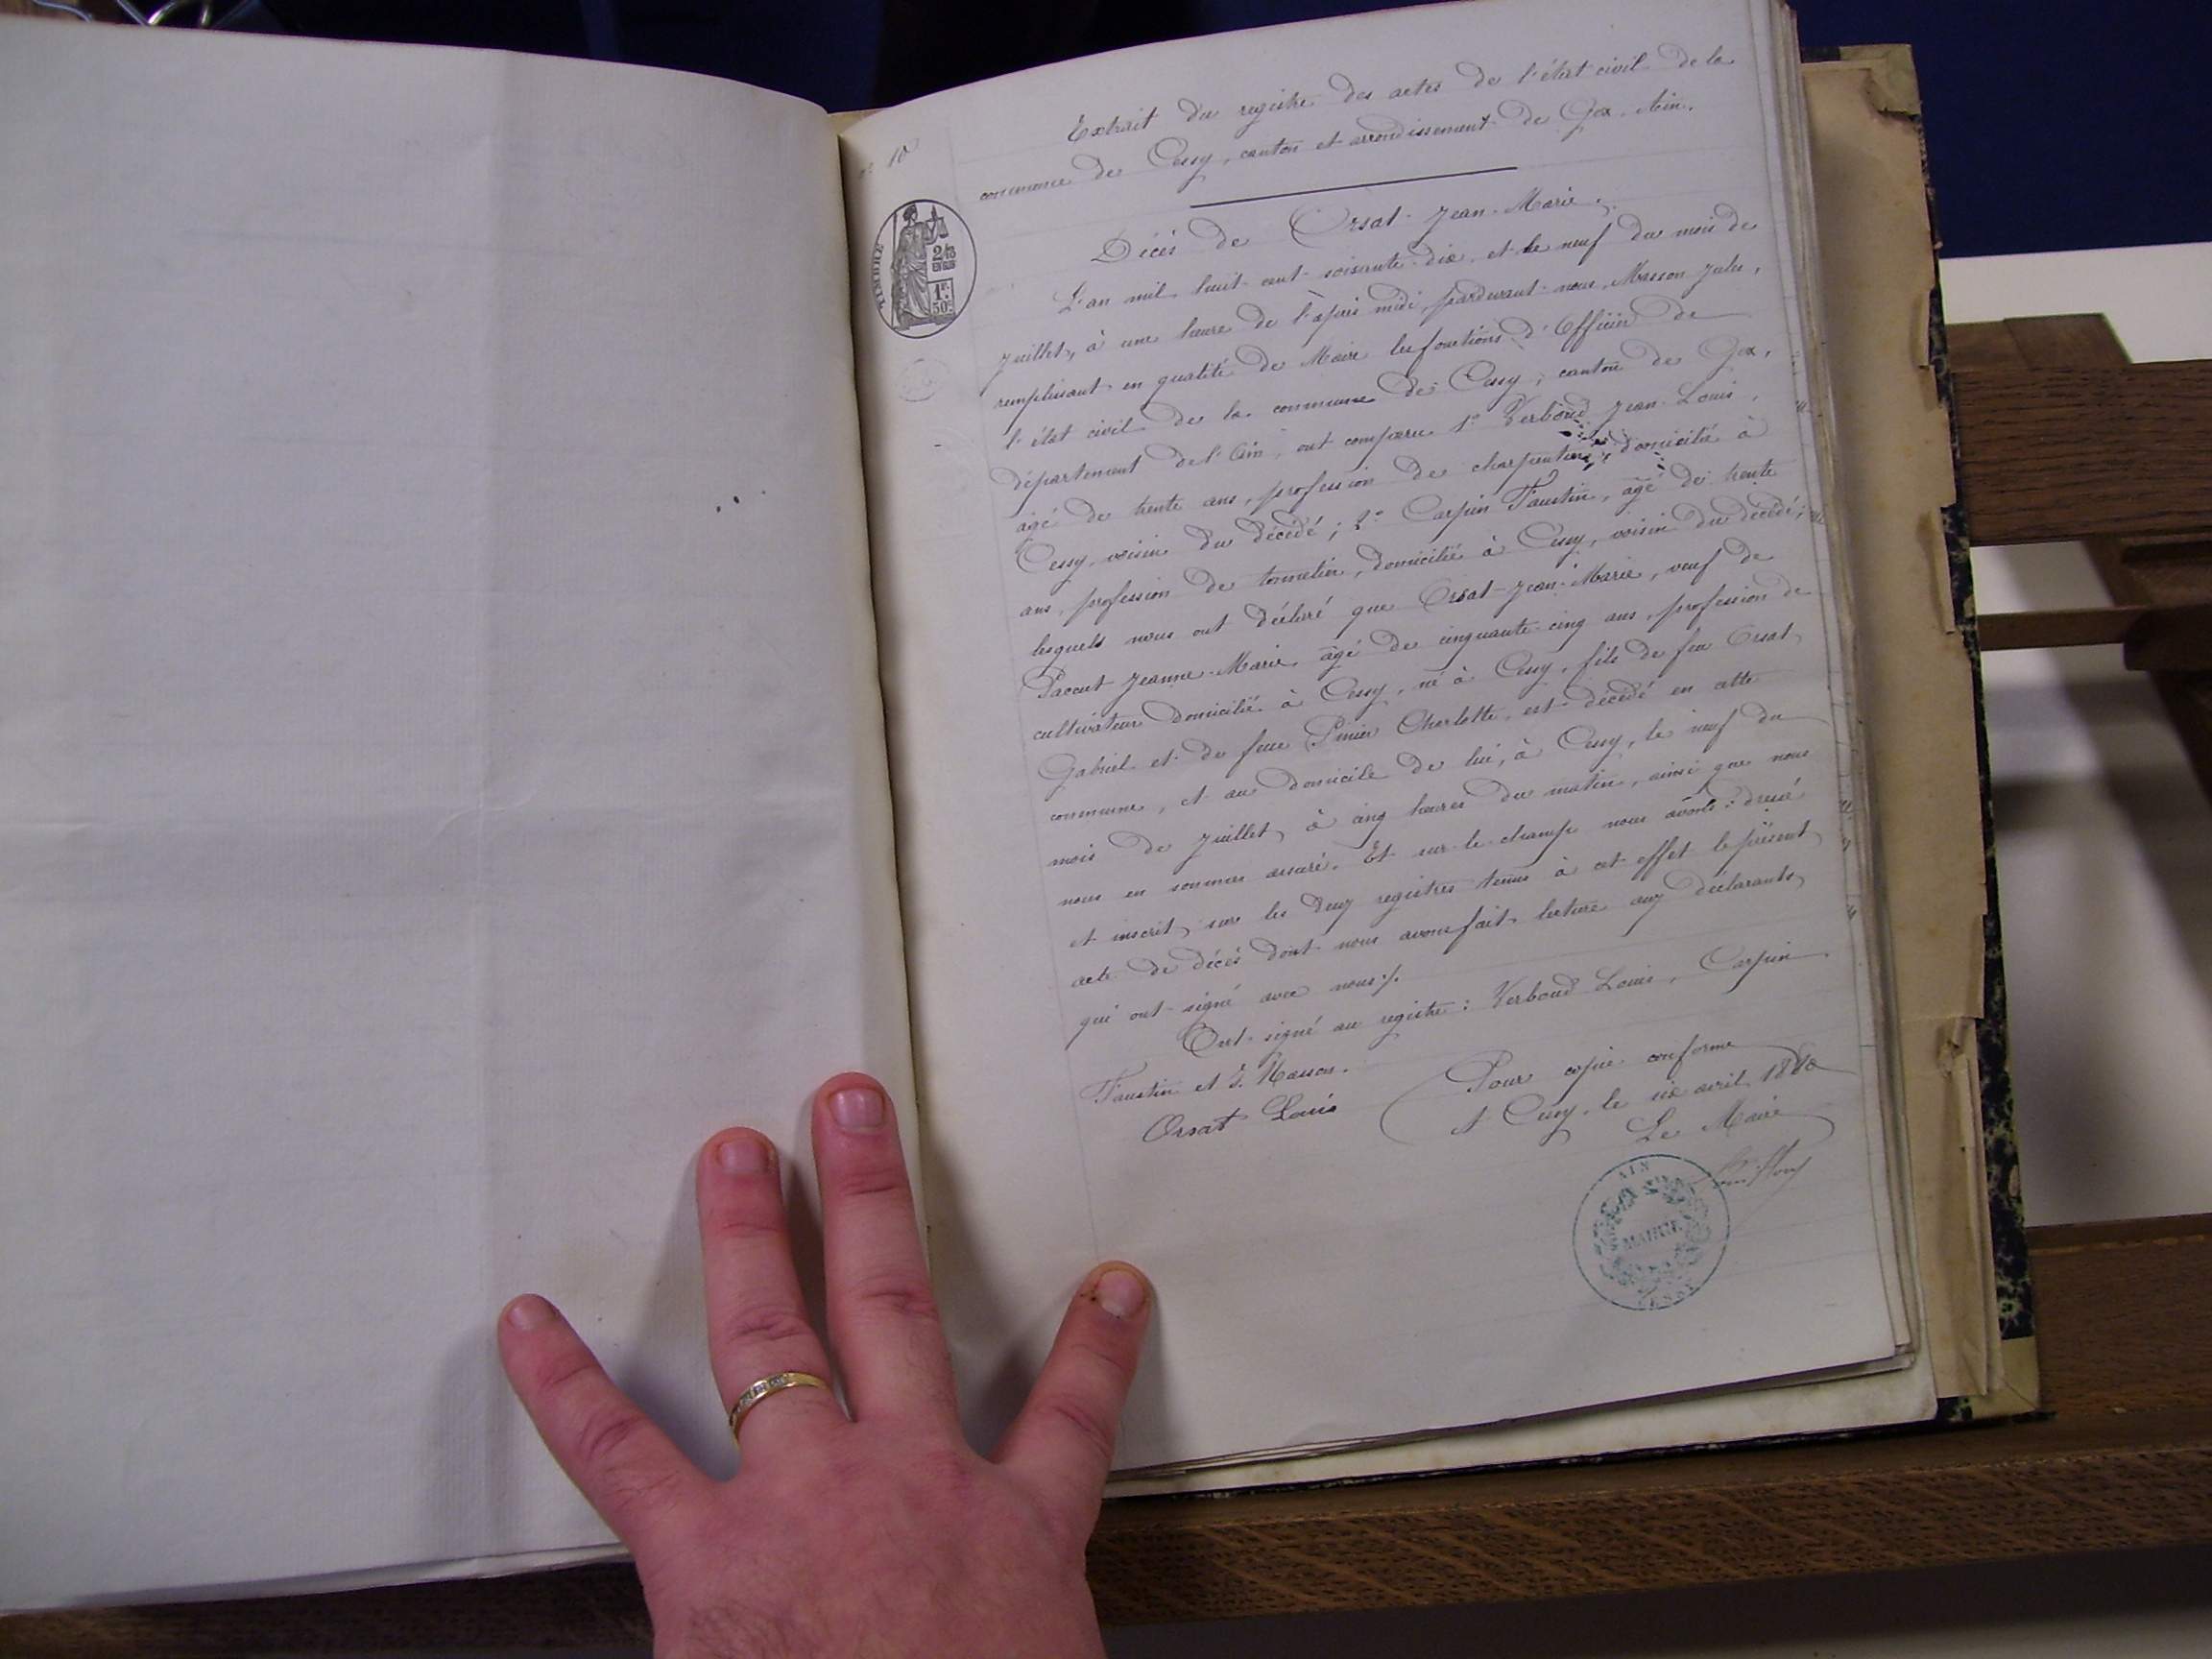 n° 10
Extrait du registre des actes de l'état civil de la
commune de Cessy, canton et arrondissement de Gex. Ain.
TIMBRE
2/10
EN SUS
1F.
50c
Décès de Orsat Jean-Marie.
L'an mil huit cent soixante-dix et le neuf du mois de
juillet, à une heure de l'après midi, pardevant nous, Masson Jules,
remplissant en qualité de Maire les fonctions d'Officier de
l'état civil de la commune de Cessy, canton de Gex,
département de l'Ain, ont comparu 1° Verboud Jean-Louis,
âgé de trente ans, profession de charpentier, domicilié à
Cessy, voisin du décédé; 2° Carpin Faustin, âgé de trente
ans, profession de tonnelier, domicilié à Cessy, voisin du décédé;
lesquels nous ont déclaré que Orsat Jean-Marie, veuf de
Paccut Jeanne-Marie, âgé de cinquante-cinq ans, profession de
cultivateur domicilié à Cessy, né à Cessy, fils de feu Orsat
Gabriel et de feue Pinier Charlotte, est décédé en cette
commune, et au domicile de lui, à Cessy, le neuf du
mois de juillet, à cinq heures du matin, ainsi que nous
nous en sommes assuré. Et sur-le-champ nous avons dressé
et inscrit sur les deux registres tenus à cet effet le présent
acte de décès dont nous avons fait lecture aux déclarants
qui ont signé avec nous ./.
Ont signé au registre: Verboud Louis, Carpin
Faustin et J. Masson.
Orsat Louis
Pour copie conforme
A Cessy, le six avril 1880
Le Maire
AIN
MAIRIE
CESSY